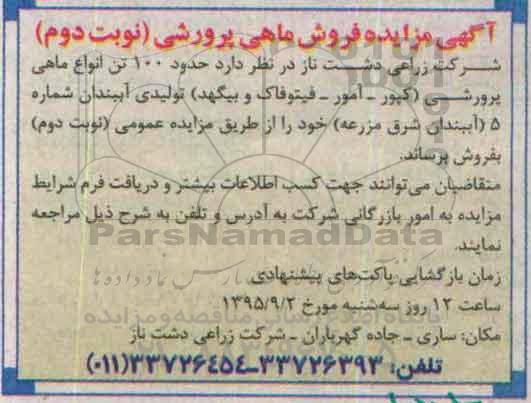 آگهی مزایده فروش ماهی پرورشی (نوبت دوم)
شرکت زراعی دشت ناز در نظر دارد حدود ۱۰۰ تن انواع ماهی
پرورشی (کپور - آمور - فیتوفاک و بیگهد) تولیدی آببندان شماره
۵ (آببندان شرق مزرعه) خود را از طریق مزایده عمومی (نوبت دوم)
بفروش برساند.
متقاضیان می‌توانند جهت کسب اطلاعات بیشتر و دریافت فرم شرایط
مزایده به امور بازرگانی شرکت به آدرس و تلفن به شرح ذیل مراجعه
نمایند.
ParsNamadData
زمان بازگشایی پاکت‌های پیشنهادی
ساعت ۱۲ روز سه‌شنبه مورخ ۱۳۹۵/۹/۲
مکان: ساری - جاده گهرباران - شرکت زراعی دشت ناز
تلفن: ۳۳۷۲۶۳۹۳-۳۳۷۲۶۴۵۴(۰۱۱)